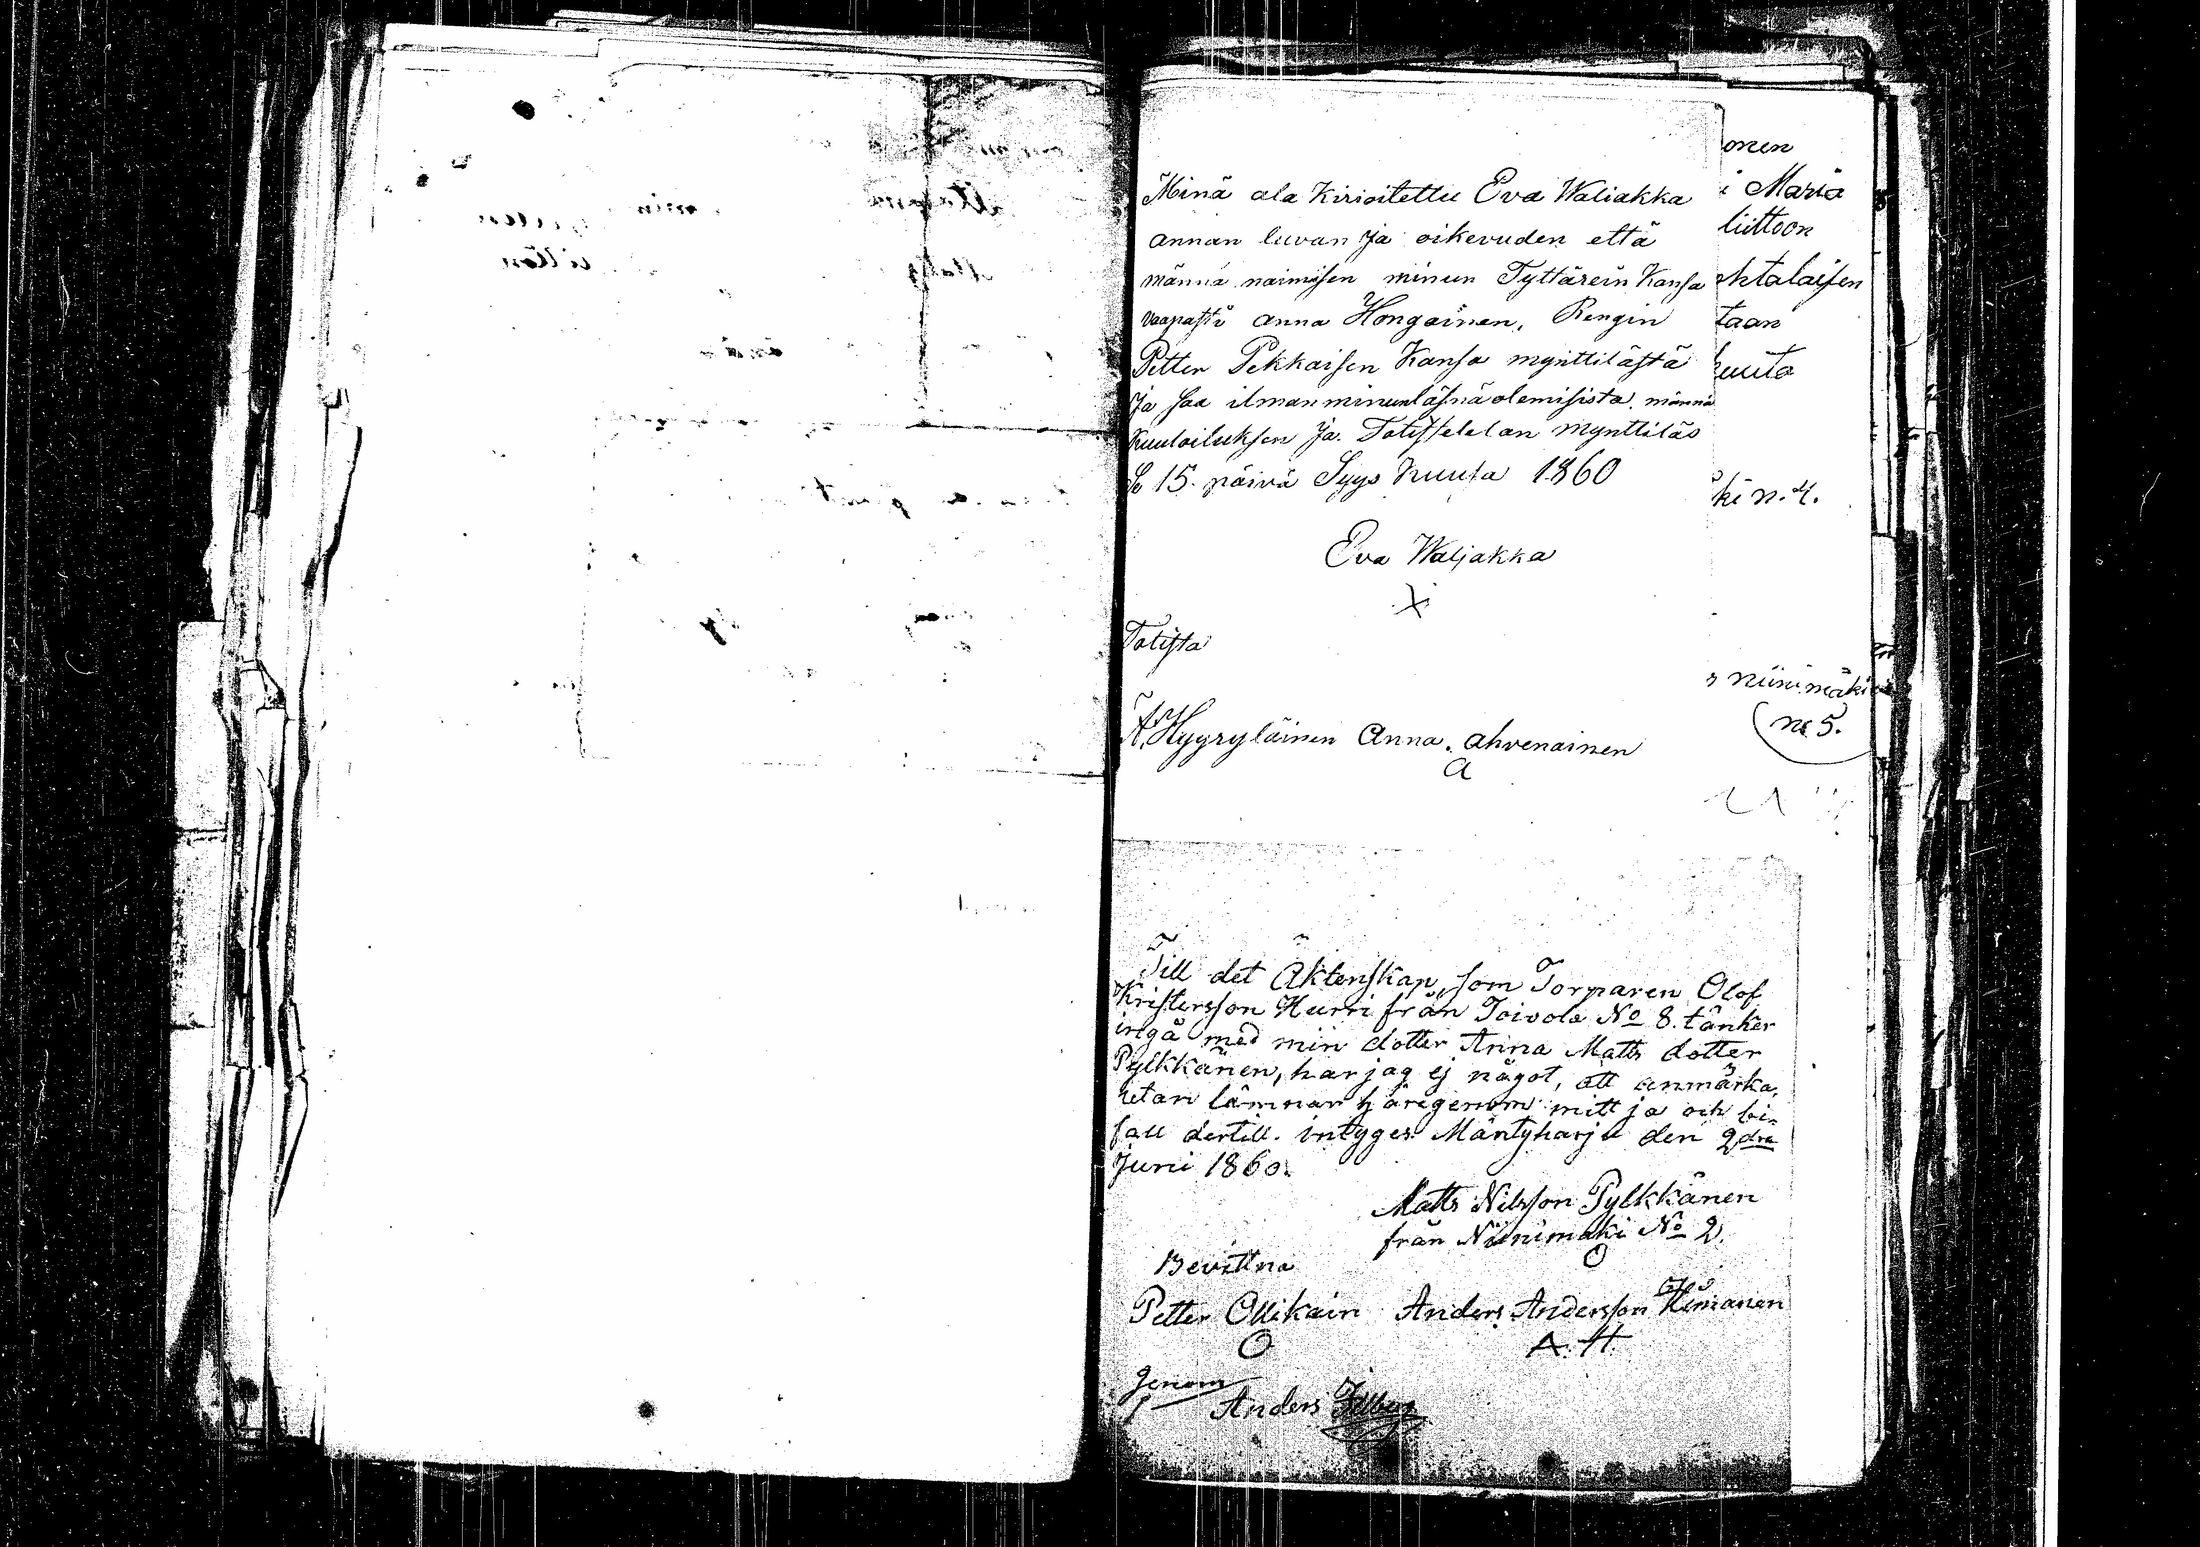 Minä ala Kirioitettu Eva Waliakka
annan luvan Ja oikevuden että
männä naimisen minun Tyttärein Kansa
vaapasti anna Hongainen, Rengin
Petter Pekkaisen Kansa mynttilästä
Ja saa ilman minun läsnä olemisista männä
Kuuloiluksen Ja Totistelelan mynttiläs
Se 15. päivä Syys Kuuta 1860
Eva Waljakka
X
Totista
A. Hyyryläinen Anna. ahvenainen
a
onen
i Maria
liittoon
htalaisen
taan
kuuta
ki n. 4.
niinimäki
no 5.
Till det Äktenskap, som Torparen Olof
Kristersson Hurri från Toivola No 8. tänker
ingå med min dotter Anna Matts dotter
Pylkkänen, har jag ej något, att anmärka,
utan lämnar härigenom mitt ja och bi-
fall dertill. intyges Mäntyharju den 2dra
Juni 1860.
Matts Nilsson Pylkkänen
från Niinimäki No 2.
Bevittna
Petter Ollikain Anders Andersson Himanen
O A. H.
Genom
Anders